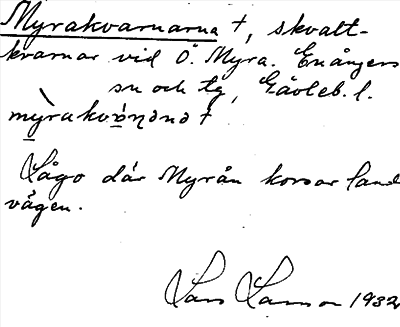 Myrakvarnarna †, skvalt-
kvarnar vid Ö. Myra. Enångers
sn och tg, Gävleb. l.
Lågo där Myrån korsar land
vägen.
Lars Larsson 1932